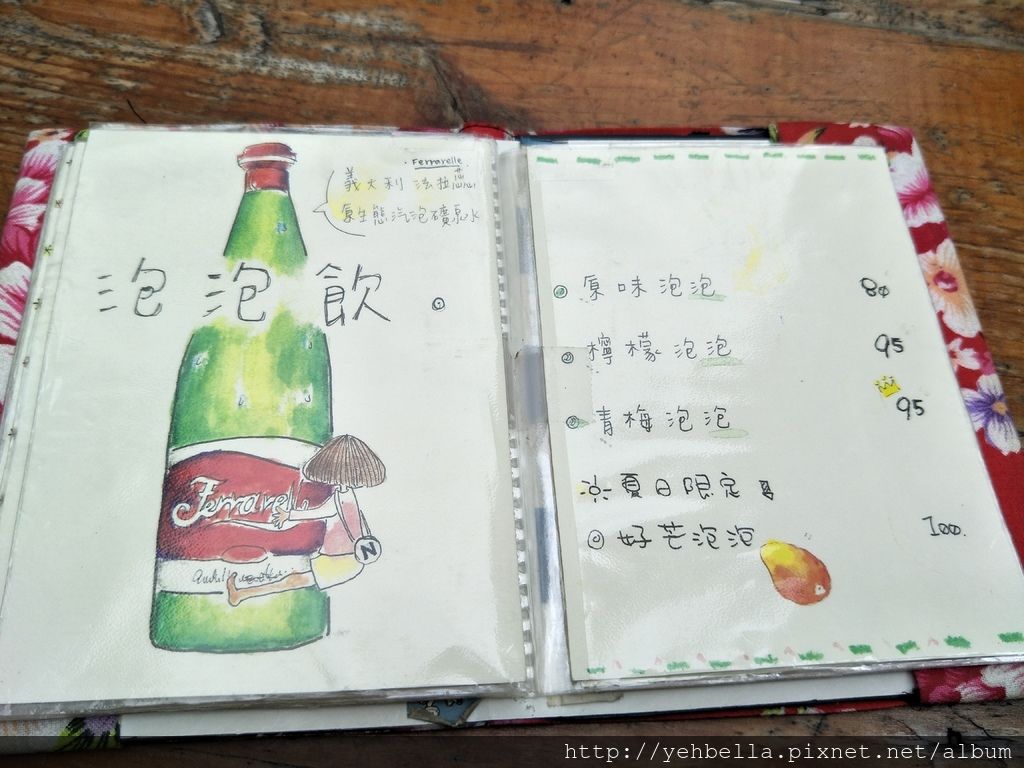 Ferrarelle
義大利 法拉蕊
原生態汽泡礦泉水
泡泡飲
Ferrarelle
N
原味泡泡 80
檸檬泡泡 95
青梅泡泡 95
夏日限定
好芒泡泡 100.
http://yehbella.pixnet.net/album